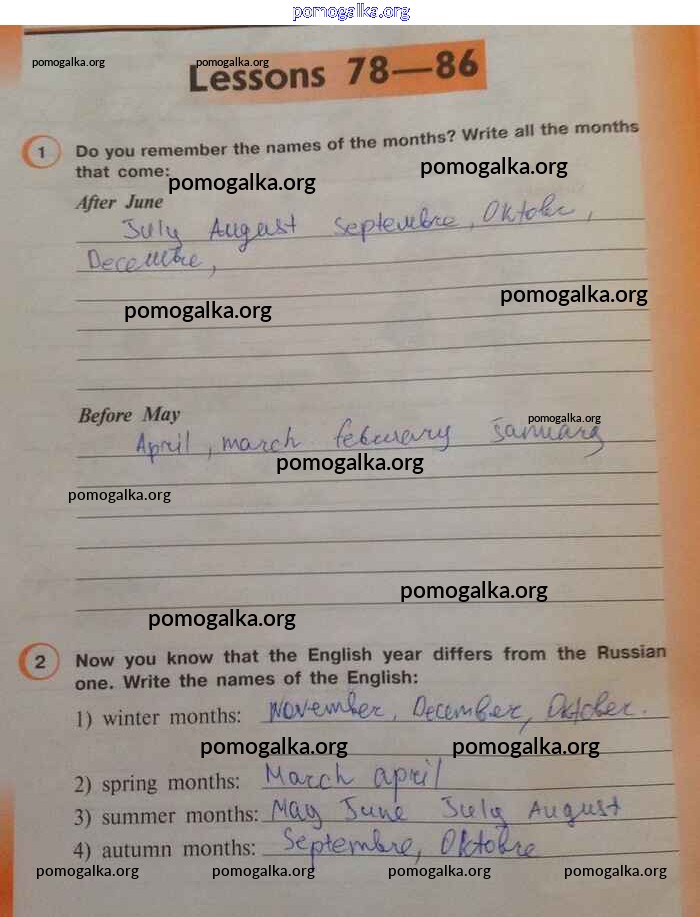 pomogalka.org
pomogalka.org pomogalka.org
Lessons 78—86
1 Do you remember the names of the months? Write all the months
that come:
pomogalka.org
pomogalka.org
After June
July August Septembre, Oktober,
Decembre,
pomogalka.org
pomogalka.org
Before May
pomogalka.org
April, march february January
pomogalka.org
pomogalka.org
pomogalka.org
pomogalka.org
2 Now you know that the English year differs from the Russian
one. Write the names of the English:
1) winter months: November, December, Oktober.
pomogalka.org pomogalka.org
2) spring months: March april
3) summer months: May June July August
4) autumn months: Septembre, Oktobre
pomogalka.org pomogalka.org pomogalka.org pomogalka.org